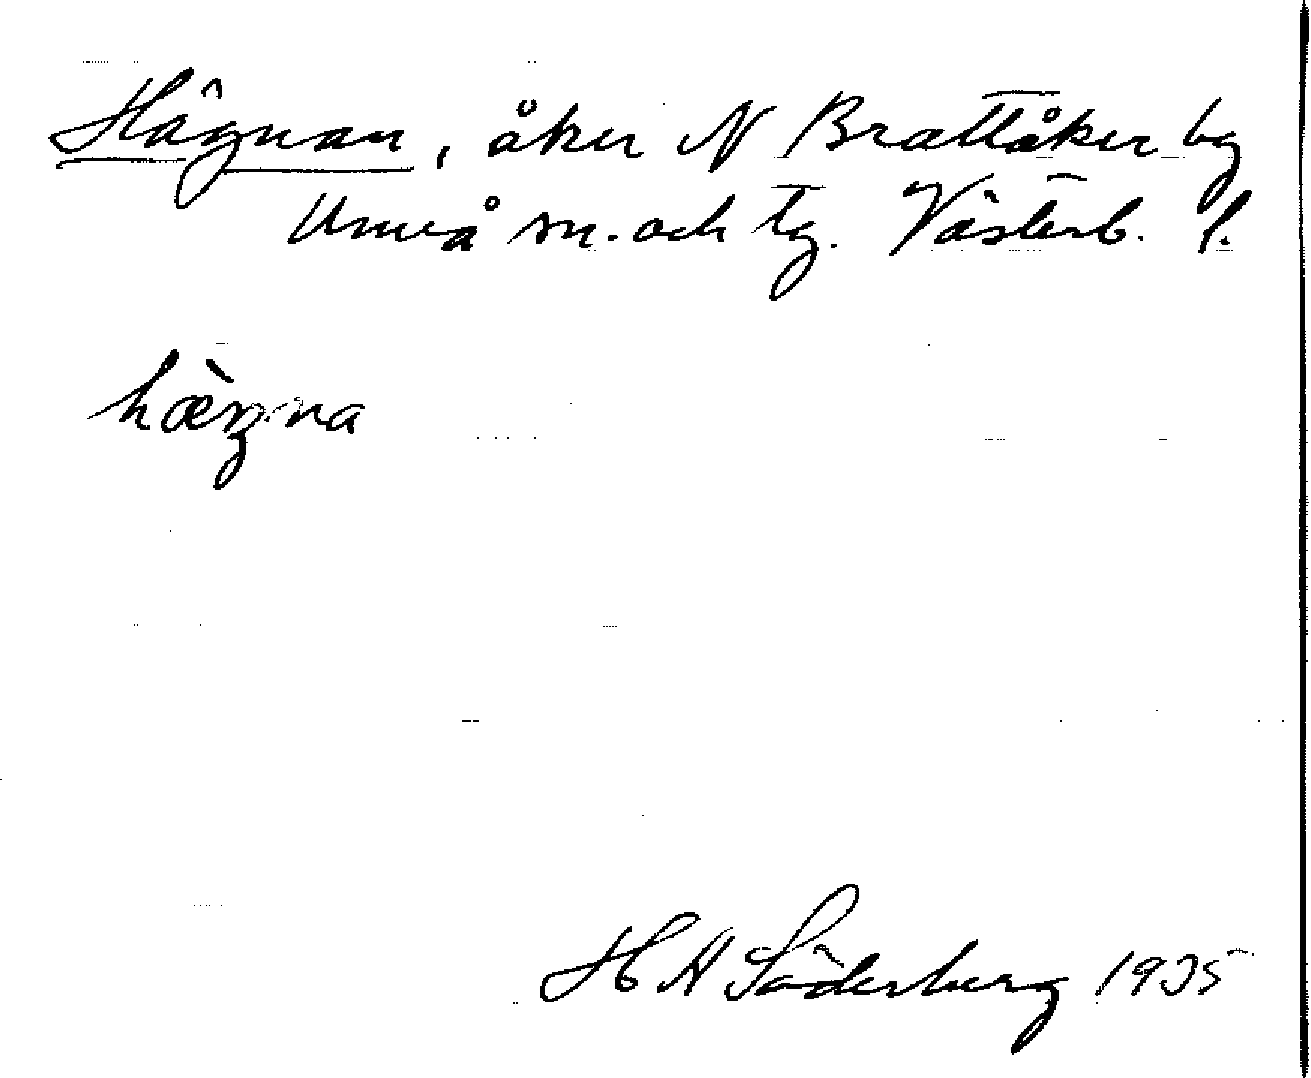 Hägnan, åker N Brattåker by
Umeå sn. och tg. Västerb. l.
hæ̀ŋna
H A Söderberg 1935